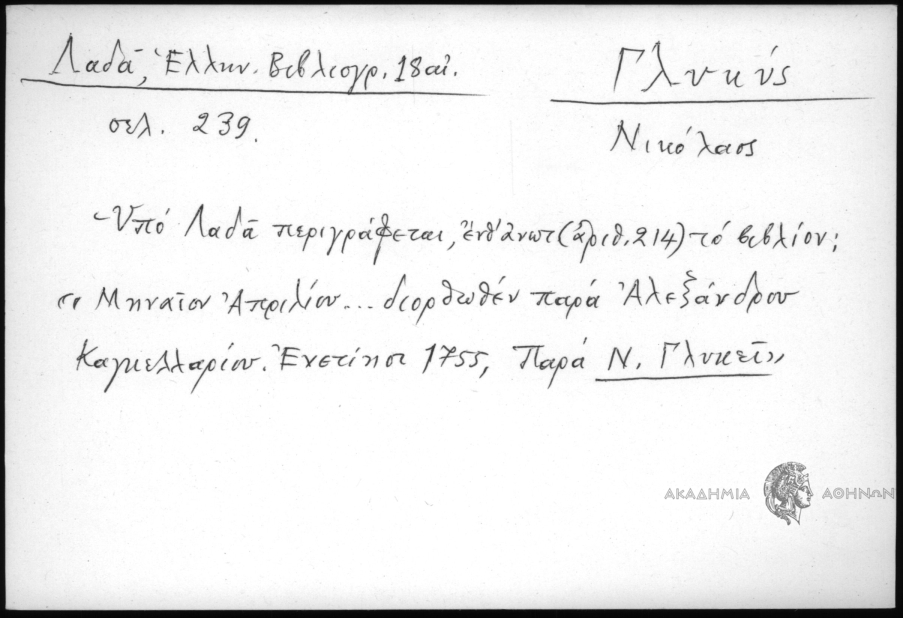 Λαδᾶ, Ἑλλην. Βιβλιογρ. 18 αἰ.
σελ. 239.
Γλυκύς
Νικόλαος
Ὑπό Λαδᾶ περιγράφεται, ἔνθ' ἄνωτ (ἀριθ. 214) τό βιβλίον:
"Μηναῖον Ἀπριλίου... διορθωθέν παρά Ἀλεξάνδρου
Καγκελλαρίου. Ἐνετίησι 1755, Παρά Ν. Γλυκεῖ"
ΑΚΑΔΗΜΙΑ ΑΘΗΝΩΝ